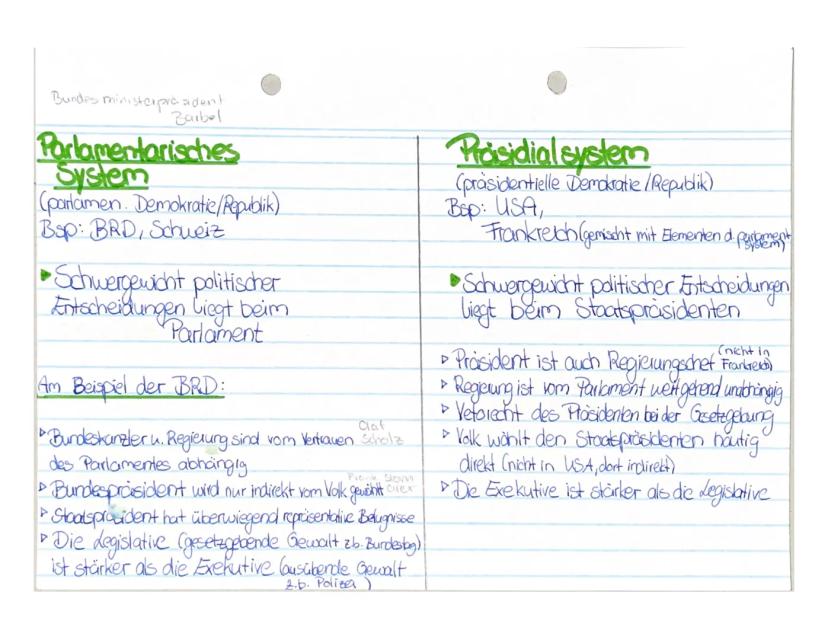 Bundesministerpräsident
Parlamentarisches
System
(parlamen. Demokratie/Republik)
Bsp: BRD, Schweiz
▸ Schwergewicht politischer
Entscheidungen liegt beim
Parlament
Am Beispiel der BRD:
▹ Bundeskanzler u. Regierung sind vom Vertrauen Olaf Scholz
des Parlamentes abhängig
▹ Bundespräsident wird nur indirekt vom Volk gewählt
▹ Staatspräsident hat überwiegend repräsentative Befugnisse
▹ Die Legislative (gesetzgebende Gewalt z.b. Bundestag)
ist stärker als die Exekutive (ausübende Gewalt
z.b. Polizei)
Präsidialsystem
(präsidentielle Demokratie/Republik)
Bsp: USA,
Frankreich (gemischt mit Elementen d. parlament system)
▸ Schwergewicht politischer Entscheidungen
liegt beim Staatspräsidenten
▹ Präsident ist auch Regierungschef (nicht in Frankreich)
▹ Regierung ist vom Parlament weitgehend unabhängig
▹ Vetorecht des Präsidenten bei der Gesetzgebung
▹ Volk wählt den Staatspräsidenten häufig
direkt (nicht in USA, dort indirekt)
▹ Die Exekutive ist stärker als die Legislative